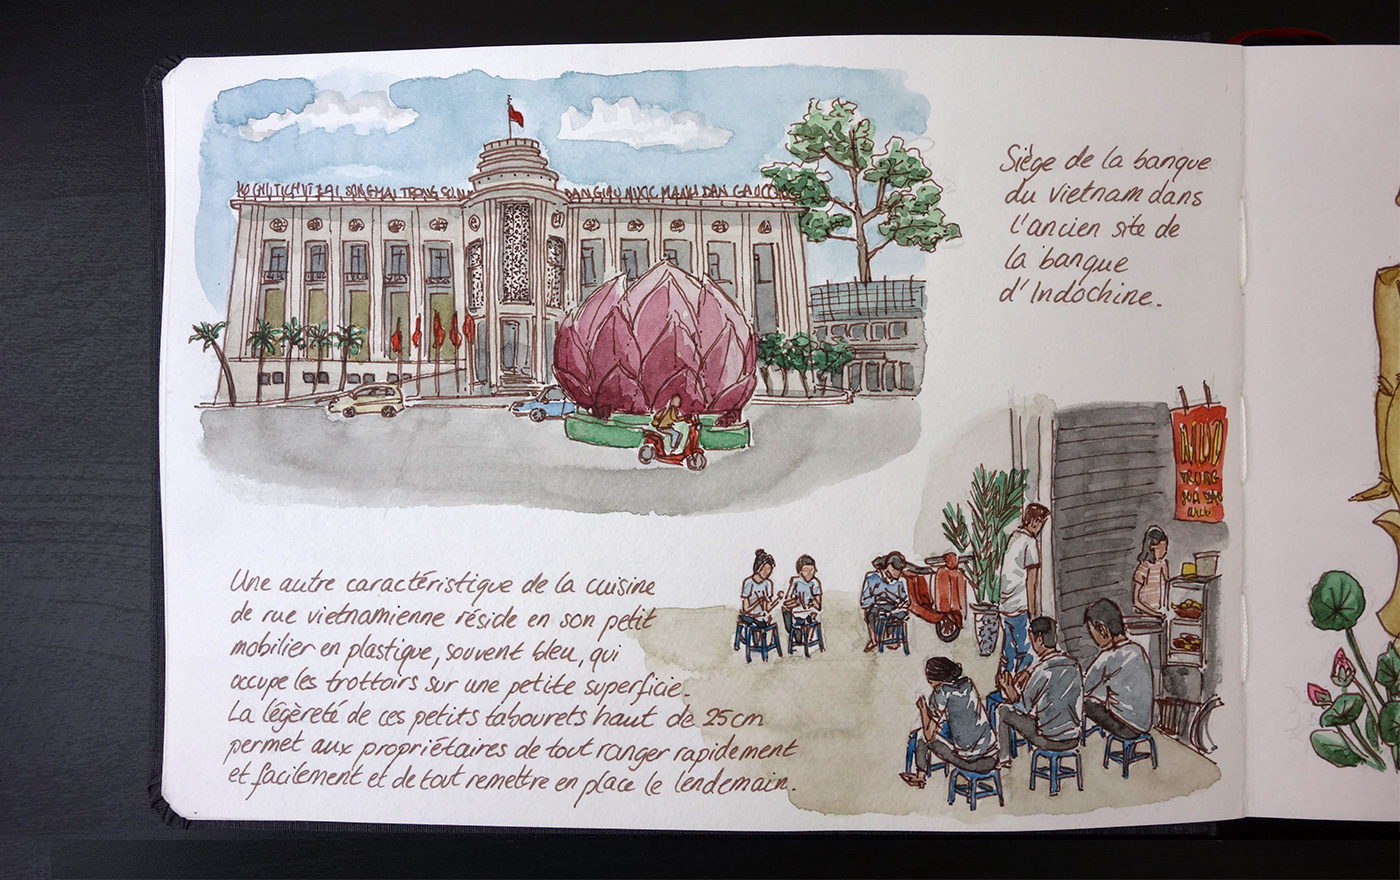 HO CHU TICH VI DAI SONG MAI TRONG SU NG
DAN GIAU NUOC MANH DAN CHU CONG
Siège de la banque
du vietnam dans
l'ancien site de
la banque
d'Indochine.
TRUNG
Une autre caractéristique de la cuisine
de rue vietnamienne réside en son petit
mobilier en plastique, souvent bleu, qui
occupe les trottoirs sur une petite superficie.
La légèreté de ces petits tabourets haut de 25cm
permet aux propriétaires de tout ranger rapidement
et facilement et de tout remettre en place le lendemain.